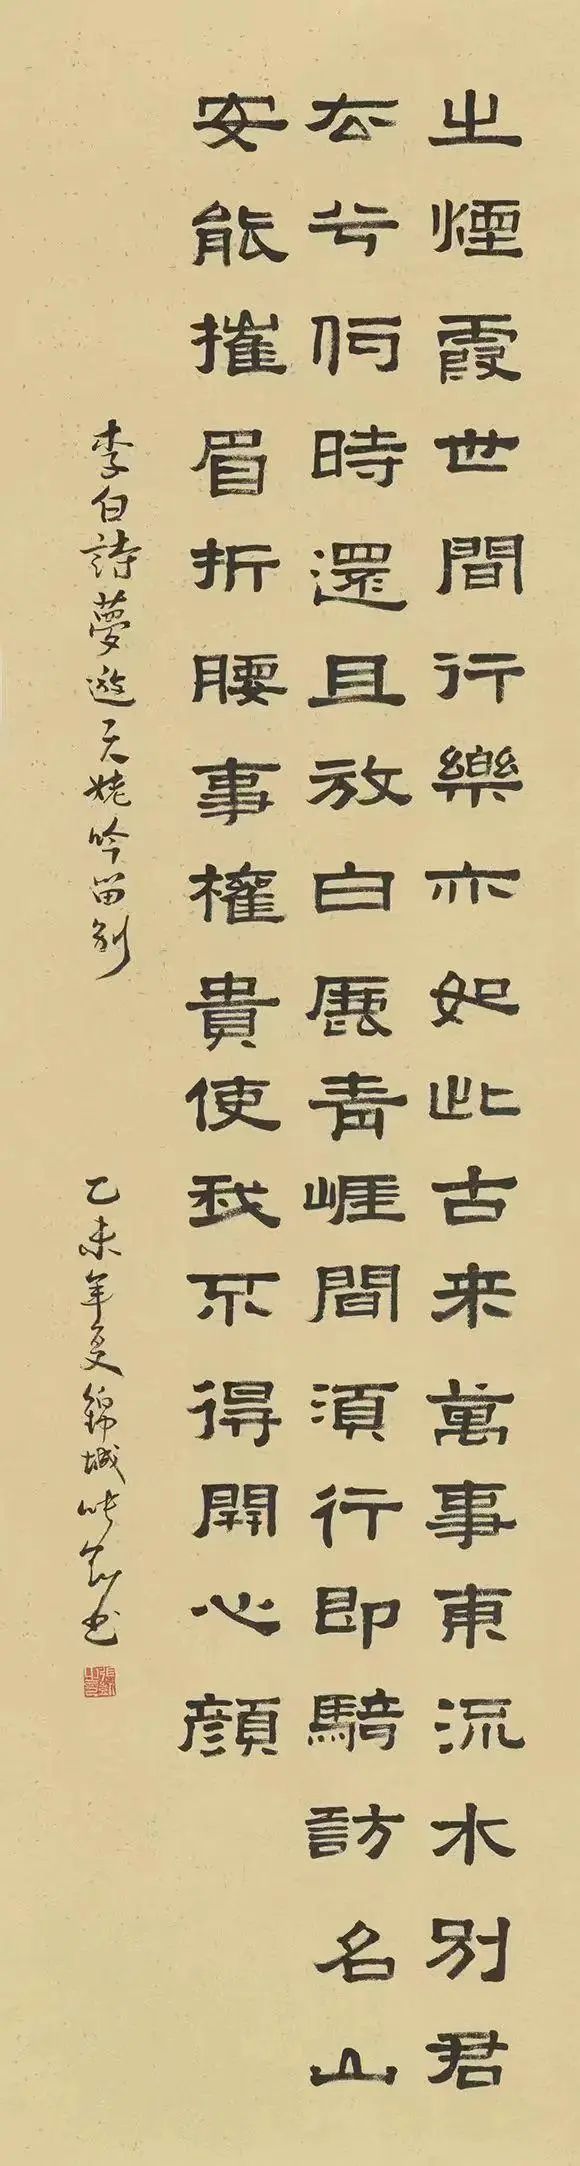 之煙霞世間行樂亦如此古来萬事東流水別君
去兮何時還且放白鹿青崖間須行即騎訪名山
安能摧眉折腰事權貴使我不得開心顏
李白詩夢遊天姥吟留別
乙未年夏錦城
書